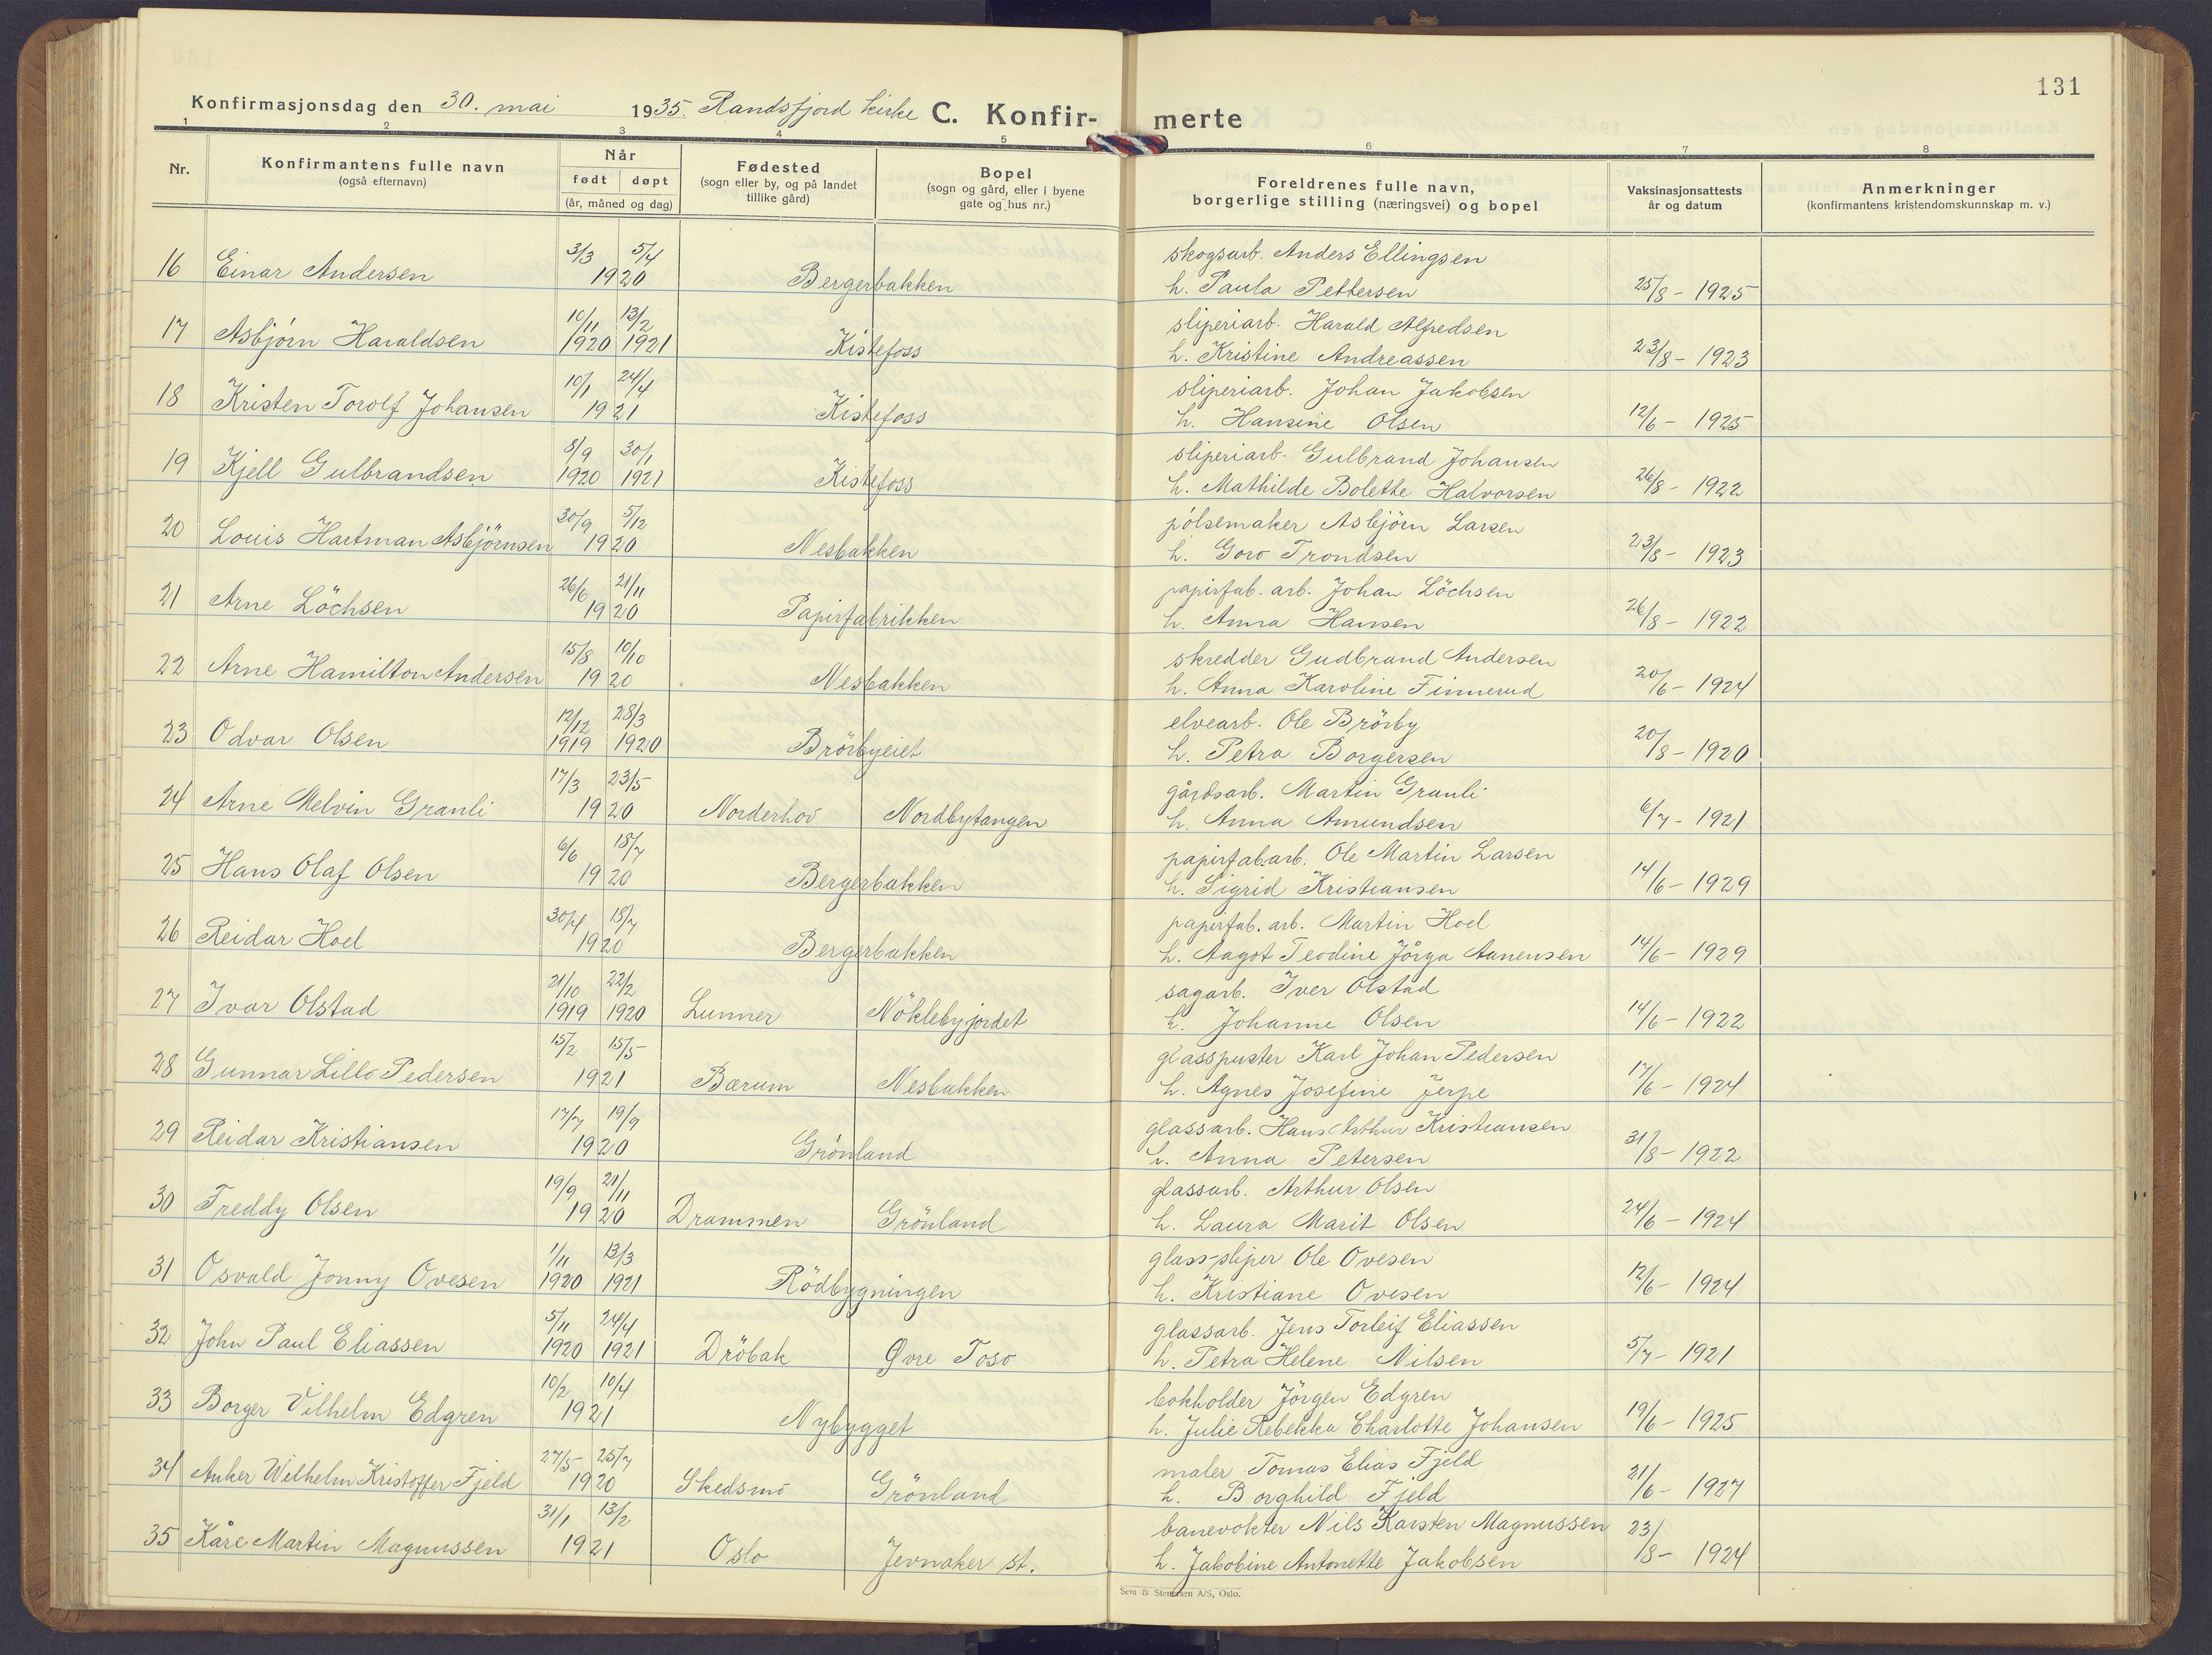 131
Konfirmasjonsdag den 30. mai 1935. Randsfjord kirke C. Konfir- merte
1 2 3 4 5 6 7 8
Nr. Konfirmantens fulle navn (også efternavn) Når født døpt (år, måned og dag) Fødested (sogn eller by, og på landet tillike gård) Bopel (sogn og gård, eller i byene gate og hus nr.) Foreldrenes fulle navn, borgerlige stilling (næringsvei) og bopel Vaksinasjonsattests år og datum Anmerkninger (konfirmantens kristendomskunnskap m. v.)
16 Einar Andersen 3/3 5/4 1920 Bergerbakken skogsarb. Anders Ellingsen
h. Paula Pettersen 25/8 - 1925
17 Asbjørn Haraldsen 10/11 1920 13/2 1921 Kistefoss sliperiarb. Harald Alfredsen
h. Kristine Andreassen 23/8 - 1923
18 Kristen Torolf Johansen 10/1 24/4 1921 Kistefoss sliperiarb. Johan Jakobsen
h. Hansine Olsen 12/6 - 1925
19 Kjell Gulbrandsen 8/9 1920 30/1 1921 Kistefoss sliperiarb. Gulbrand Johansen
h. Mathilde Bolette Halvorsen 26/8 - 1922
20 Louis Hartman Asbjörnsen 30/9 5/12 1920 Nesbakken pölsemaker Asbjörn Larsen
h. Goro Trondsen 23/8 - 1923
21 Arne Löchsen 26/6 21/11 1920 Papirfabrikken papirfab. arb. Johan Löchsen
h. Anna Hansen 26/8 - 1922
22 Arne Hamilton Andersen 15/8 10/10 1920 Nesbakken skredder Gudbrand Andersen
h. Anna Karoline Finnerud 20/6 - 1924
23 Odvar Olsen 12/12 1919 28/3 1920 Brörbyeiet elvearb. Ole Brörby
h. Petra Borgersen 20/8 - 1920
24 Arne Melvin Granli 17/3 23/5 1920 Norderhov Nordbytangen gårdsarb. Martin Granli
h. Anna Amundsen 6/7 - 1921
25 Hans Olaf Olsen 6/6 18/7 1920 Bergerbakken papirfab.arb. Ole Martin Larsen
h. Sigrid Kristiansen 14/6 - 1929
26 Reidar Hoel 30/4 18/7 1920 Bergerbakken papirfab. arb. Martin Hoel
h. Aagot Teodine Jörga Aanensen 14/6 - 1929
27 Ivar Olstad 21/10 1919 22/2 1920 Lunner Nöklebyjordet sagarb. Iver Olstad
h. Johanne Olsen 14/6 - 1922
28 Gunnar Lillo Pedersen 15/2 15/5 1921 Bærum Nesbakken glasspuster Karl Johan Pedersen
h. Agnes Josefine Jerpe 17/6 - 1924
29 Reidar Kristiansen 17/7 19/9 1920 Grönland glassarb. Hans Arthur Kristiansen
h. Anna Petersen 31/8 - 1922
30 Freddy Olsen 19/9 21/11 1920 Drammen Grönland glassarb. Arthur Olsen
h. Laura Marit Olsen 24/6 - 1924
31 Osvald Jonny Ovesen 1/11 1920 13/3 1921 Rödbygningen glass-sliper Ole Ovesen
h. Kristiane Ovesen 12/6 - 1924
32 John Paul Eliassen 5/11 1920 24/4 1921 Dröbak Øvre Toso glassarb. Jens Torleif Eliassen
h. Petra Helene Nilsen 5/7 - 1921
33 Borger Vilhelm Edgren 10/2 10/4 1921 Nybygget bokholder Jörgen Edgren
h. Julie Rebekka Charlotte Johansen 19/6 - 1925
34 Anker Wilhelm Kristoffer Fjeld 27/5 25/7 1920 Skedsmo Grönland maler Tomas Elias Fjeld
h. Borghild Fjeld 21/6 - 1927
35 Kåre Martin Magnussen 31/1 13/2 1921 Oslo Jevnaker st. banevokter Nils Karsten Magnussen
h. Jakobine Antonette Jakobsen 23/8 - 1924
Sem & Stenersen A/S, Oslo.